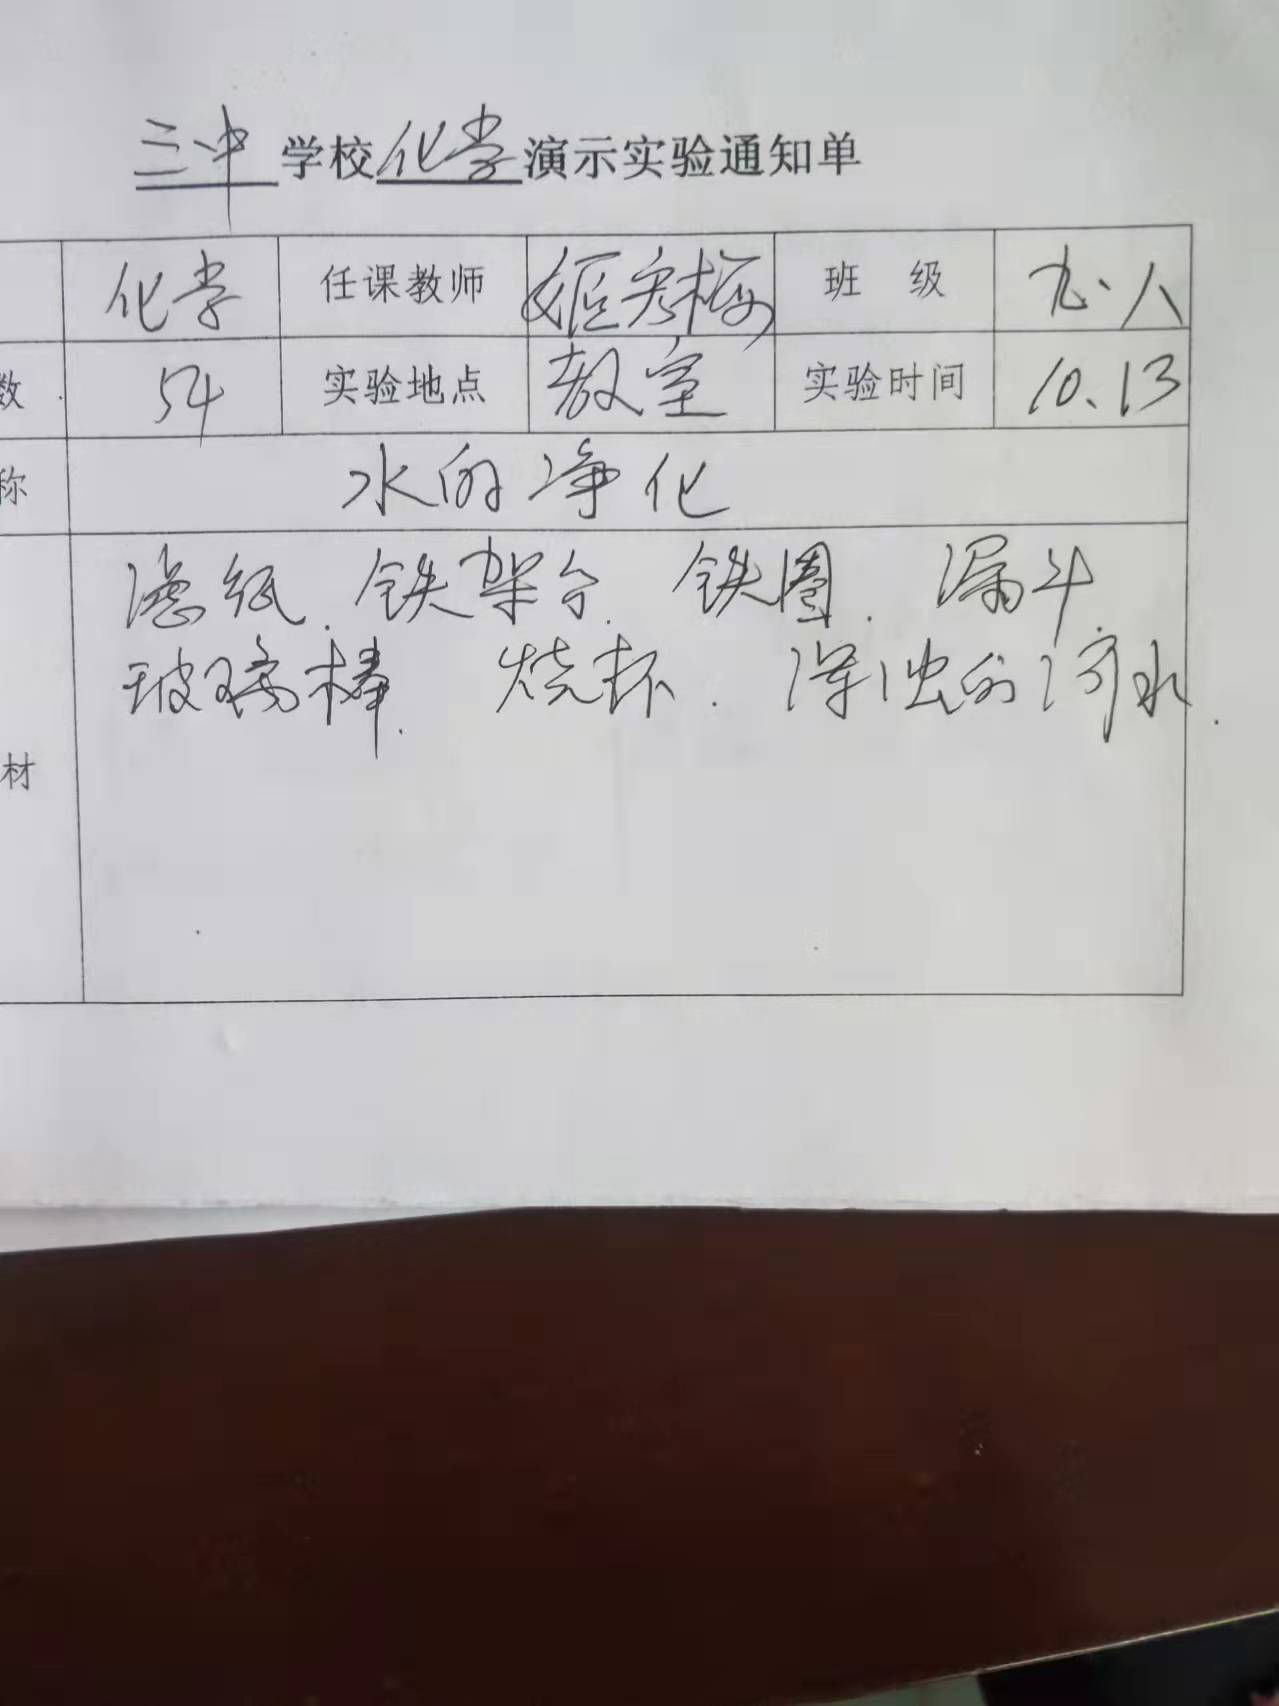 三中学校化学演示实验通知单
化学 任课教师 姬秀梅 班 级 九.八
数 54 实验地点 教室 实验时间 10.13
称 水的净化
滤纸.铁架台.铁圈.漏斗.
玻璃棒.烧杯.浑浊的河水.
材